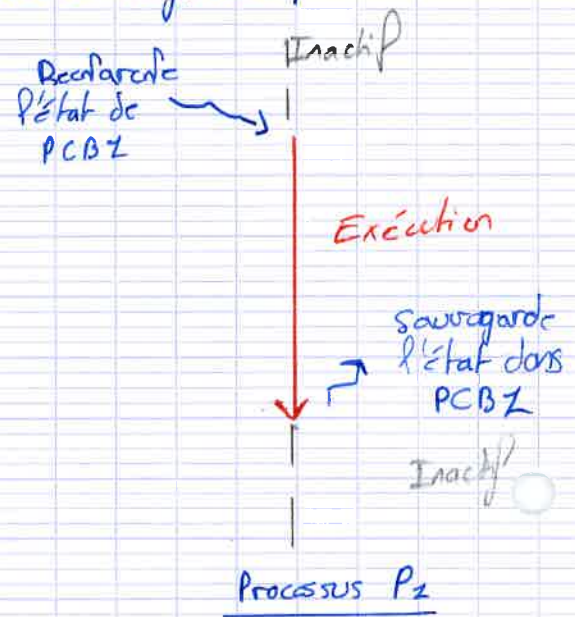 Inactif
l'état de
PCB1
Exécution
Sauvegarde
l'état dans
PCB1
Inactif
Processus P1